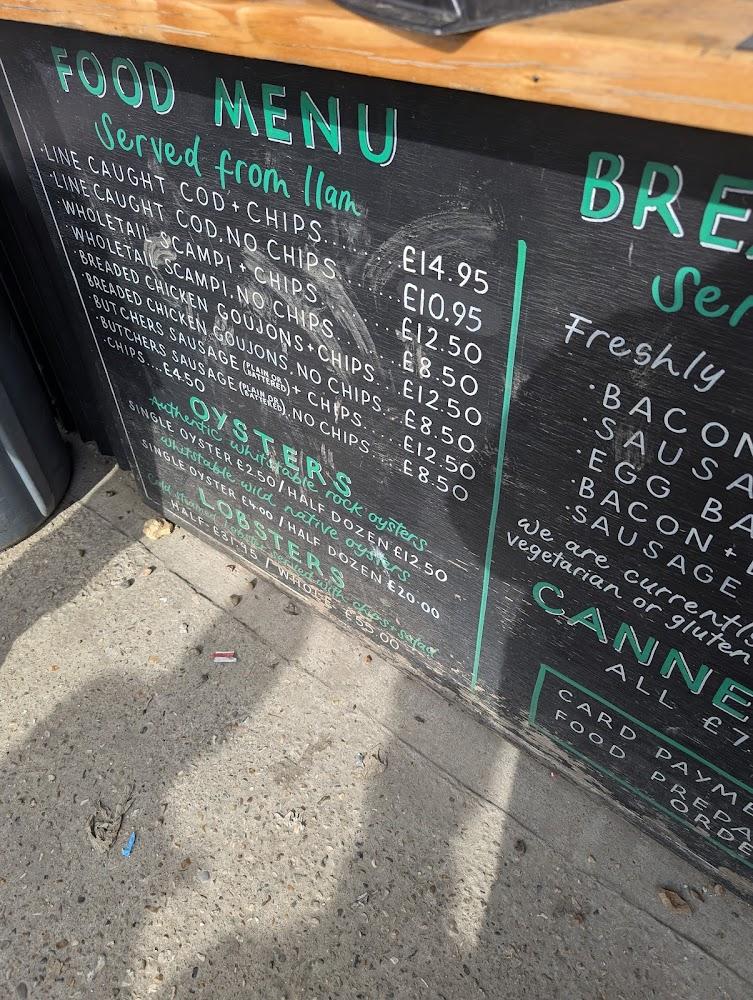 FOOD MENU
Served from 11am
·LINE CAUGHT COD + CHIPS........£14.95
·LINE CAUGHT COD, NO CHIPS........£10.95
·WHOLETAIL SCAMPI + CHIPS........£12.50
·WHOLETAIL SCAMPI, NO CHIPS........£8.50
·BREADED CHICKEN GOUJONS + CHIPS...£12.50
·BREADED CHICKEN GOUJONS, NO CHIPS...£8.50
·BUTCHERS SAUSAGE (PLAIN OR BATTERED) + CHIPS....£12.50
·BUTCHERS SAUSAGE (PLAIN OR BATTERED), NO CHIPS....£8.50
·CHIPS...£4.50
OYSTERS
Authentic whitstable rock oysters
SINGLE OYSTER £2.50 / HALF DOZEN £12.50
whitstable wild native oysters
SINGLE OYSTER £4.00 / HALF DOZEN £20.00
LOBSTERS
served with chips + salad
HALF £31.95 / WHOLE £55.00
BRE
Ser
Freshly
·BACON
·SAUSA
·EGG BA
·BACON +
·SAUSAGE
we are currently
vegetarian or gluten
CANNE
ALL £7
CARD PAYME
FOOD PREPA
ORDE